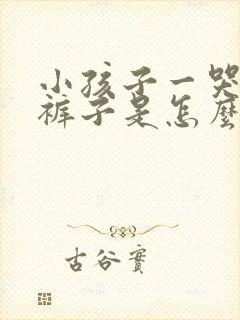 小孩子一哭
裤子是怎麼
古谷實